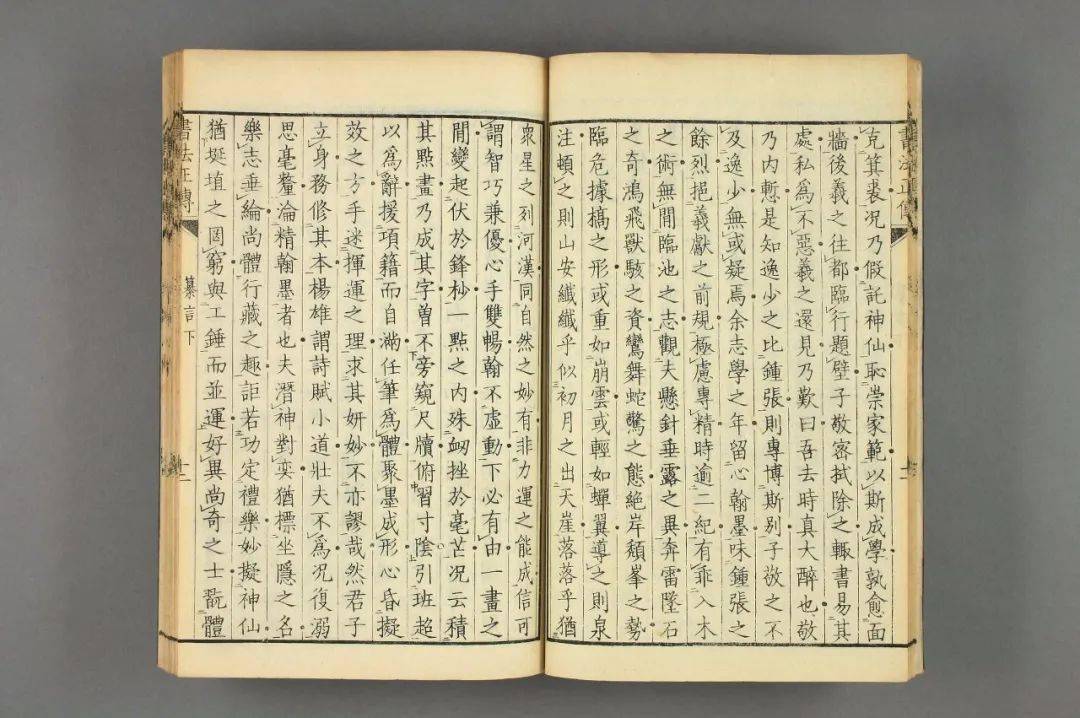 書法正傳
克箕裘况乃假託神仙恥崇家範以斯成學孰愈面
牆後羲之往都臨行題壁子敬密拭除之輒書易其
處私爲不惡羲之還見乃歎曰吾去時真大醉也敬
乃內慙是知逸少之比鍾張則專博斯别子敬之不
及逸少無或疑焉余志學之年留心翰墨味鍾張之
餘烈挹羲獻之前規極慮專精時逾二紀有乖入木
之術無間臨池之志觀夫懸針垂露之異奔雷墜石
之奇鴻飛獸駭之資鸞舞蛇驚之態絶岸頹峯之勢
臨危據槁之形或重如崩雲或輕如蟬翼導之則泉
注頓之則山安纖纖乎似初月之出天崖落落乎猶
衆星之列河漢同自然之妙有非力運之能成信可
謂智巧兼優心手雙暢翰不虚動下必有由一畫之
間變起伏於鋒杪一點之内殊衂挫於毫芒况云積
其點畫乃成其字曾不旁窺尺牘俯習寸陰引班超
以爲辭援項籍而自滿任筆爲體聚墨成形心昏擬
效之方手迷揮運之理求其妍妙不亦謬哉然君子
立身務修其本楊雄謂詩賦小道壯夫不爲况復溺
思毫釐淪精翰墨者也夫潛神對奕猶標坐隱之名
樂志垂綸尚體行藏之趣詎若功定禮樂妙擬神仙
猶埏埴之罔窮與工錘而並運好異尚奇之士翫體
書法正傳 纂言下 十二